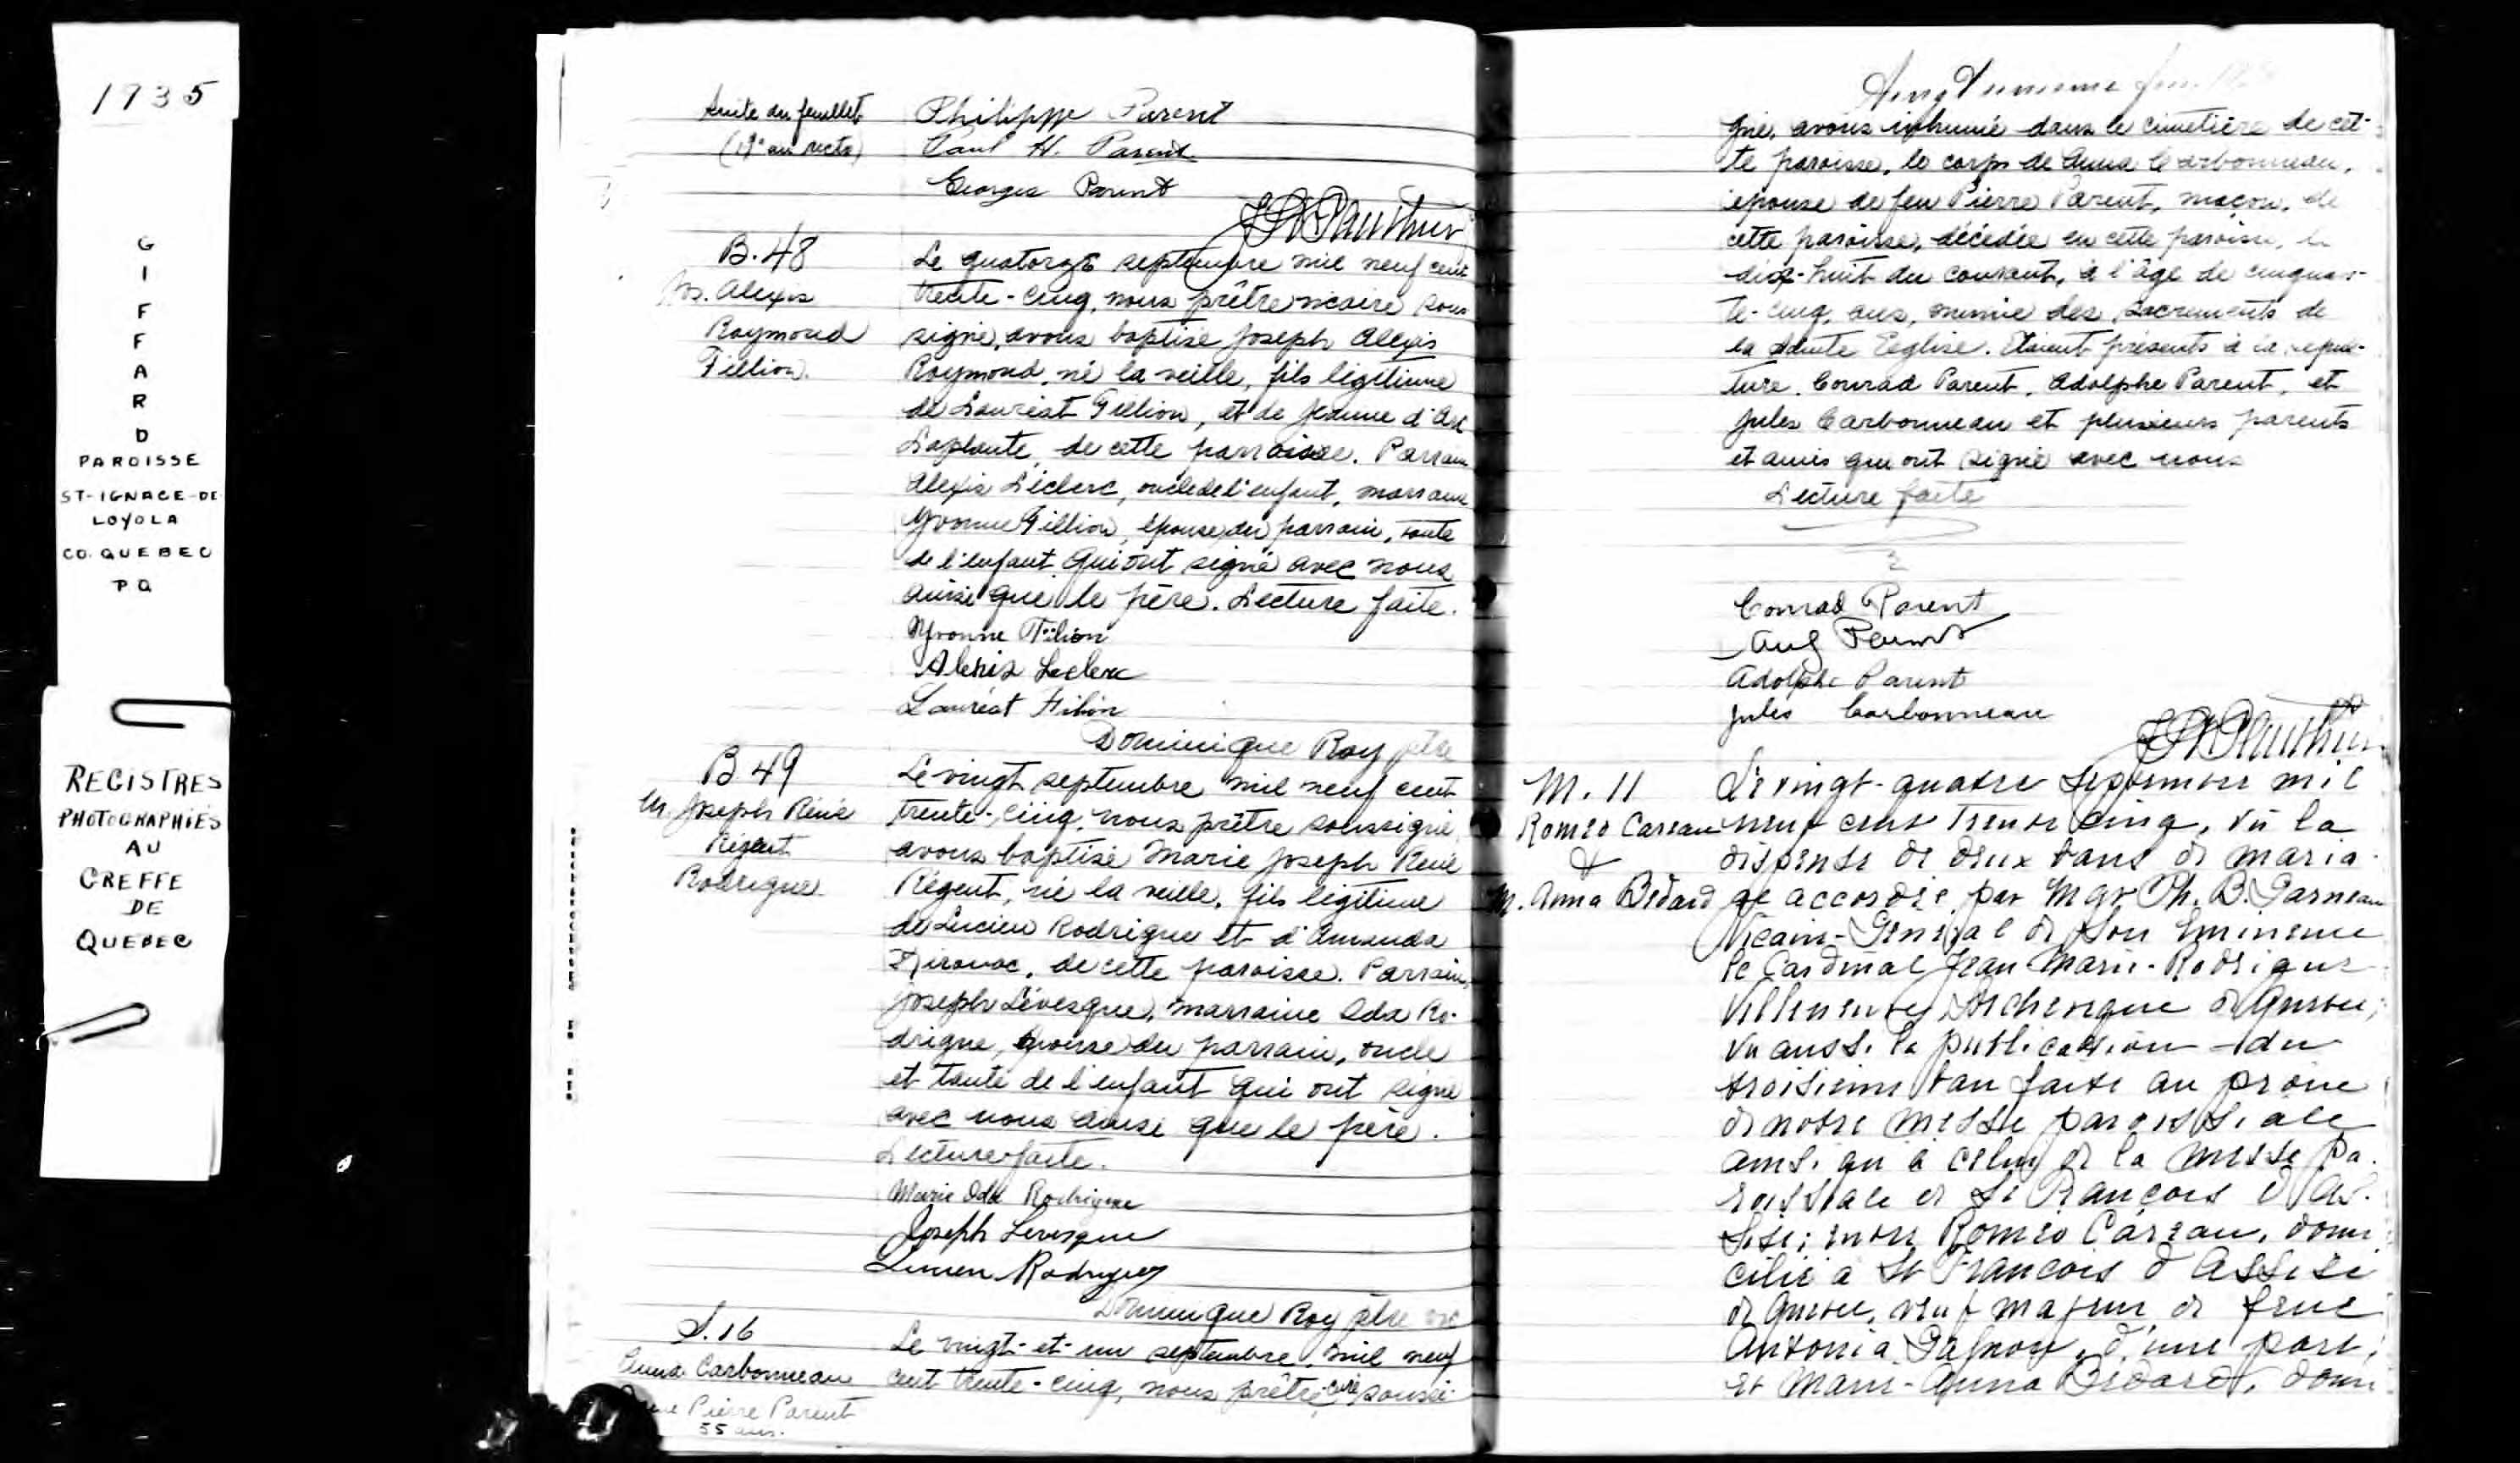 1935
G
I
F
F
A
R
D
PAROISSE
ST-IGNACE-DE
LOYOLA
CO. QUEBEC
P Q
REGISTRES
PHOTOGRAPHIÉS
AU
GREFFE
DE
QUEBEC
Suite du feuillet
(19e au recto)
Philippe Parent
Paul H. Parent
Georges Parent
B. 48
M. Alexis
Raymond
Fillion.
Le quatorze septembre mil neuf cent
trente-cinq, nous prêtre vicaire sous
signé, avons baptisé Joseph Alexis
Raymond, né la veille, fils légitime
de Lauréat Fillion, et de Jeanne d'Arc
Laplante, de cette parroisse. Parrain
Alexis Leclerc, oncle de l'enfant, marraine
Yvonne Fillion, épouse du parrain, tante
de l'enfant qui ont signé avec nous
ainsi que le père. Lecture faite.
Yvonne Filion
Alexis Leclerc
Lauréat Filion
Dominique Roy ptre
B 49
M. Joseph René
Régent
Rodrigue
Le vingt septembre mil neuf cent
trente-cinq, nous prêtre soussigné
avons baptisé Marie Joseph René
Régent, né la veille, fils légitime
de Lucien Rodrigue et d'Amanda
Kirouac, de cette paroisse. Parrain,
Joseph Lévesque, marraine Oda Ro-
drigue, épouse du parrain, oncle
et tante de l'enfant qui ont signé
avec nous ainsi que le père.
Lecture faite.
Marie Oda Rodrigue
Joseph Levesque
Lucien Rodrigue
Dominique Roy ptre vic
S. 16
Anna Carbonneau
Pierre Parent
55 ans.
Le vingt-et-un septembre, mil neuf
cent trente-cinq, nous prêtre curé soussi-
gné, avons inhumé dans le cimetière de cet-
te paroisse, le corps de Anna Carbonneau,
épouse de feu Pierre Parent, maçon, de
cette paroisse, décédée en cette paroisse, le
dix-huit du courant, à l'âge de cinquan-
te-cinq ans, munie des sacrements de
la Sainte Eglise. Etaient présents à la sépul-
ture. Conrad Parent, Adolphe Parent, et
Jules Carbonneau et plusieurs parents
et amis qui ont signé avec nous
Lecture faite
Conrad Parent
Adolphe Parent
Jules Carbonneau
M. 11
Roméo Careau
&
M. Anna Bédard
Le vingt-quatre septembre mil
neuf cent trente cinq, vu la
dispense de deux bans de maria-
ge accordée par Mgr Ph. B. Garneau
Vicaire-Général de Son Eminence
le Cardinal Jean Marie-Rodrigue
Villeneuve, Archevêque de Québec;
vu aussi la publication du
troisième ban faite au prône
de notre messe paroissiale
ainsi qu'à celui de la messe pa-
roissiale de St François d'As-
sise; entre Roméo Careau, domi
cilié à St François d'Assise
de Québec, veuf majeur de feue
Antonia Gagnon, d'une part;
et Marie-Anna Bédard, domi